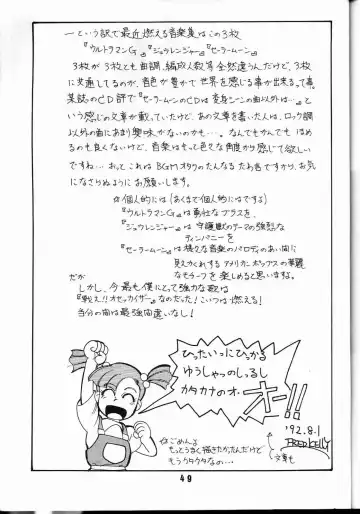 ―という訳で最近燃える音楽集はこの3枚
『ウルトラマンG』『ジュウレンジャー』『セーラームーン』
3枚が3枚とも曲調、編成人数等全然違うんだけど、3枚
に共通してるのが、音色が豊かで世界を感じる事が出来るって事。
某誌のCD評で『セーラームーンのCDは変身シーンの曲以外は…』と
いう感じの文章が載っていたけど、あの文章を書いた人は、ロック調
以外の曲にあまり興味がないのかも…。なんでもかんでもほめ
るのも良くないけど、音楽はもっと色々な角度から感じて欲しい
ですね…おっとこれはBGMオタクのたんなるたわ言ですから、お気
になさらぬようにお願いします。
☆個人的には(あくまで個人的にはですよ)
『ウルトラマンG』は勇壮なブラスを、
『ジュウレンジャー』は守護獣のテーマの強烈な
ティンパニーを
『セーラームーン』は様々な音楽のパロディのあい間に
見えかくれするアメリカンポップスの華麗
なモチーフを楽しめると思いますよ。
だが
しかし、今最も僕にとって強力な歌は
『戦え!!オセッカイザー』なのだった!こいつは燃える!
当分の間は最強間違いなし!
ひったいっにひっかる
ゆうしゃのっしるし
カタカナのオ・
オー!!
'92.8.1
FRED KELLY
☆ごめんよ
もっとうまく描きたかったんだけど
もうクタクタなの…
文章も
49